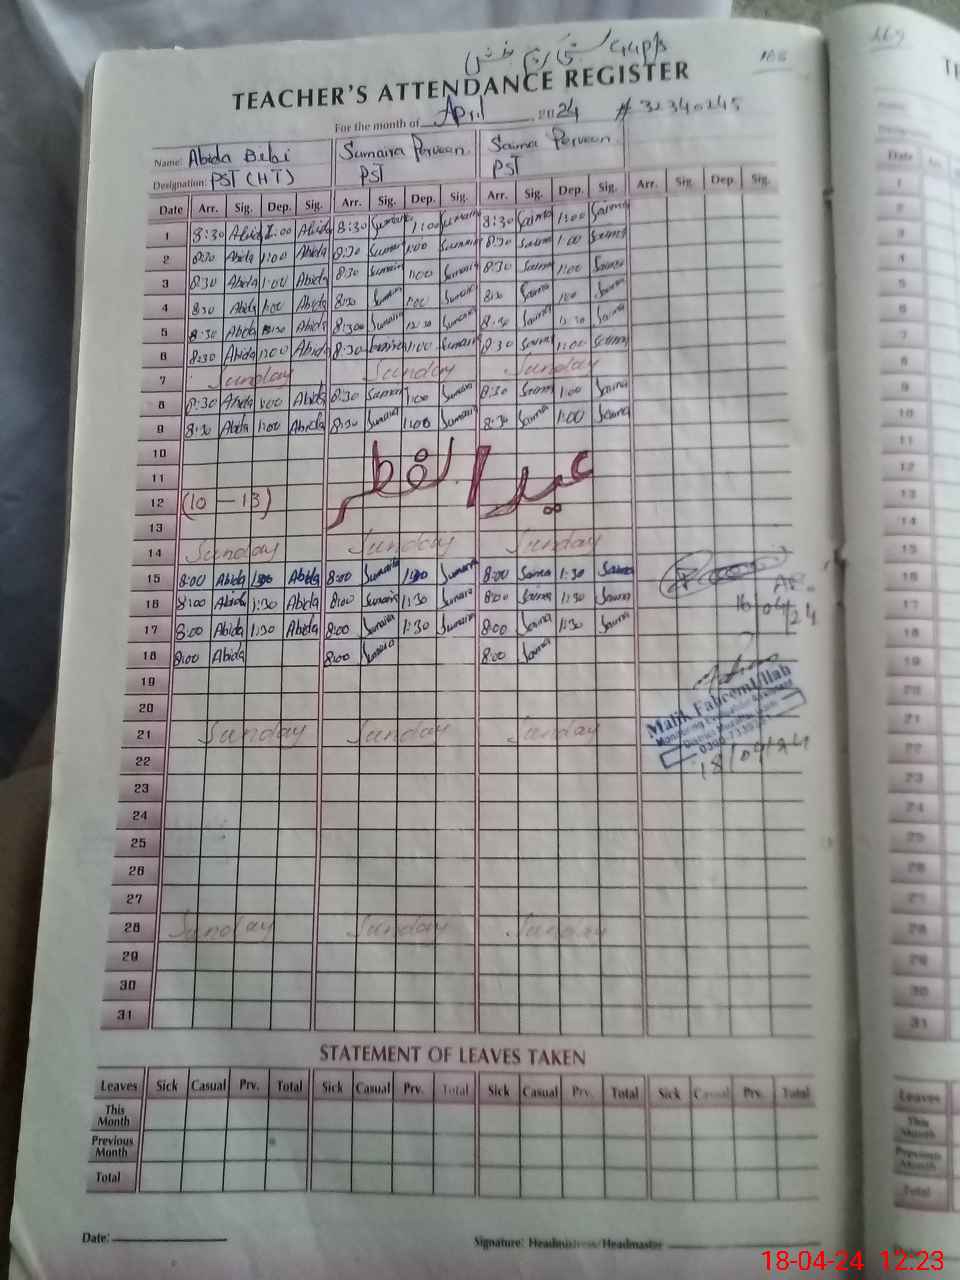 GGPS
TEACHER'S ATTENDANCE REGISTER
For the month of April 2024 # 32340245
Name: Abida Bibi Sumaira Perveen Saima Perveen
Designation: PST (HT) PST PST
Date Arr. Sig. Dep. Sig. Arr. Sig. Dep. Sig. Arr. Sig. Dep. Sig. Arr. Sig. Dep. Sig.
1 8:30 Abida 1:00 Abida 8:30 Sumaira 1:00 Sumaira 8:30 Saima 1:00 Saima
2 8:30 Abida 1:00 Abida 8:30 Sumaira 1:00 Sumaira 8:30 Saima 1:00 Saima
3 8:30 Abida 1:00 Abida 8:30 Sumaira 1:00 Sumaira 8:30 Saima 1:00 Saima
4 8:30 Abida 1:00 Abida 8:30 Sumaira 1:00 Sumaira 8:30 Saima 1:00 Saima
5 8:30 Abida Abida 8:30 Sumaira 12:30 Sumaira 8:30 Saima 12:30 Saima
6 8:30 Abida 1:00 Abida 8:30 Sumaira 1:00 Sumaira 8:30 Saima 1:00 Saima
7 Sunday Sunday Sunday
8 8:30 Abida 1:00 Abida 8:30 Sumaira 1:00 Sumaira 8:30 Saima 1:00 Saima
9 8:30 Abida 1:00 Abida 8:30 Sumaira 1:00 Sumaira 8:30 Saima 1:00 Saima
10
11
12 (10 - 13) عید الفطر
13
14 Sunday Sunday Sunday
15 8:00 Abida Abida 8:00 Sumaira Sumaira 8:00 Saima 1:30 Saima
16 8:00 Abida 1:30 Abida 8:00 Sumaira 1:30 Sumaira 8:00 Saima 1:30 Saima
16/04/24
17 8:00 Abida 1:30 Abida 8:00 Sumaira 1:30 Sumaira 8:00 Saima 1:30 Saima
18 8:00 Abida 8:00 Sumaira 8:00 Saima
19
20
Malik Faheem Ullah
21 Sunday Sunday Sunday
18/04/24
22
23
24
25
26
27
28 Sunday Sunday Sunday
29
30
31
STATEMENT OF LEAVES TAKEN
Leaves Sick Casual Prv. Total Sick Casual Prv. Total Sick Casual Prv. Total Sick Casual Prv. Total
This Month
Previous Month
Total
Date: Signature: Headmistress/Headmaster
18-04-24 12:23